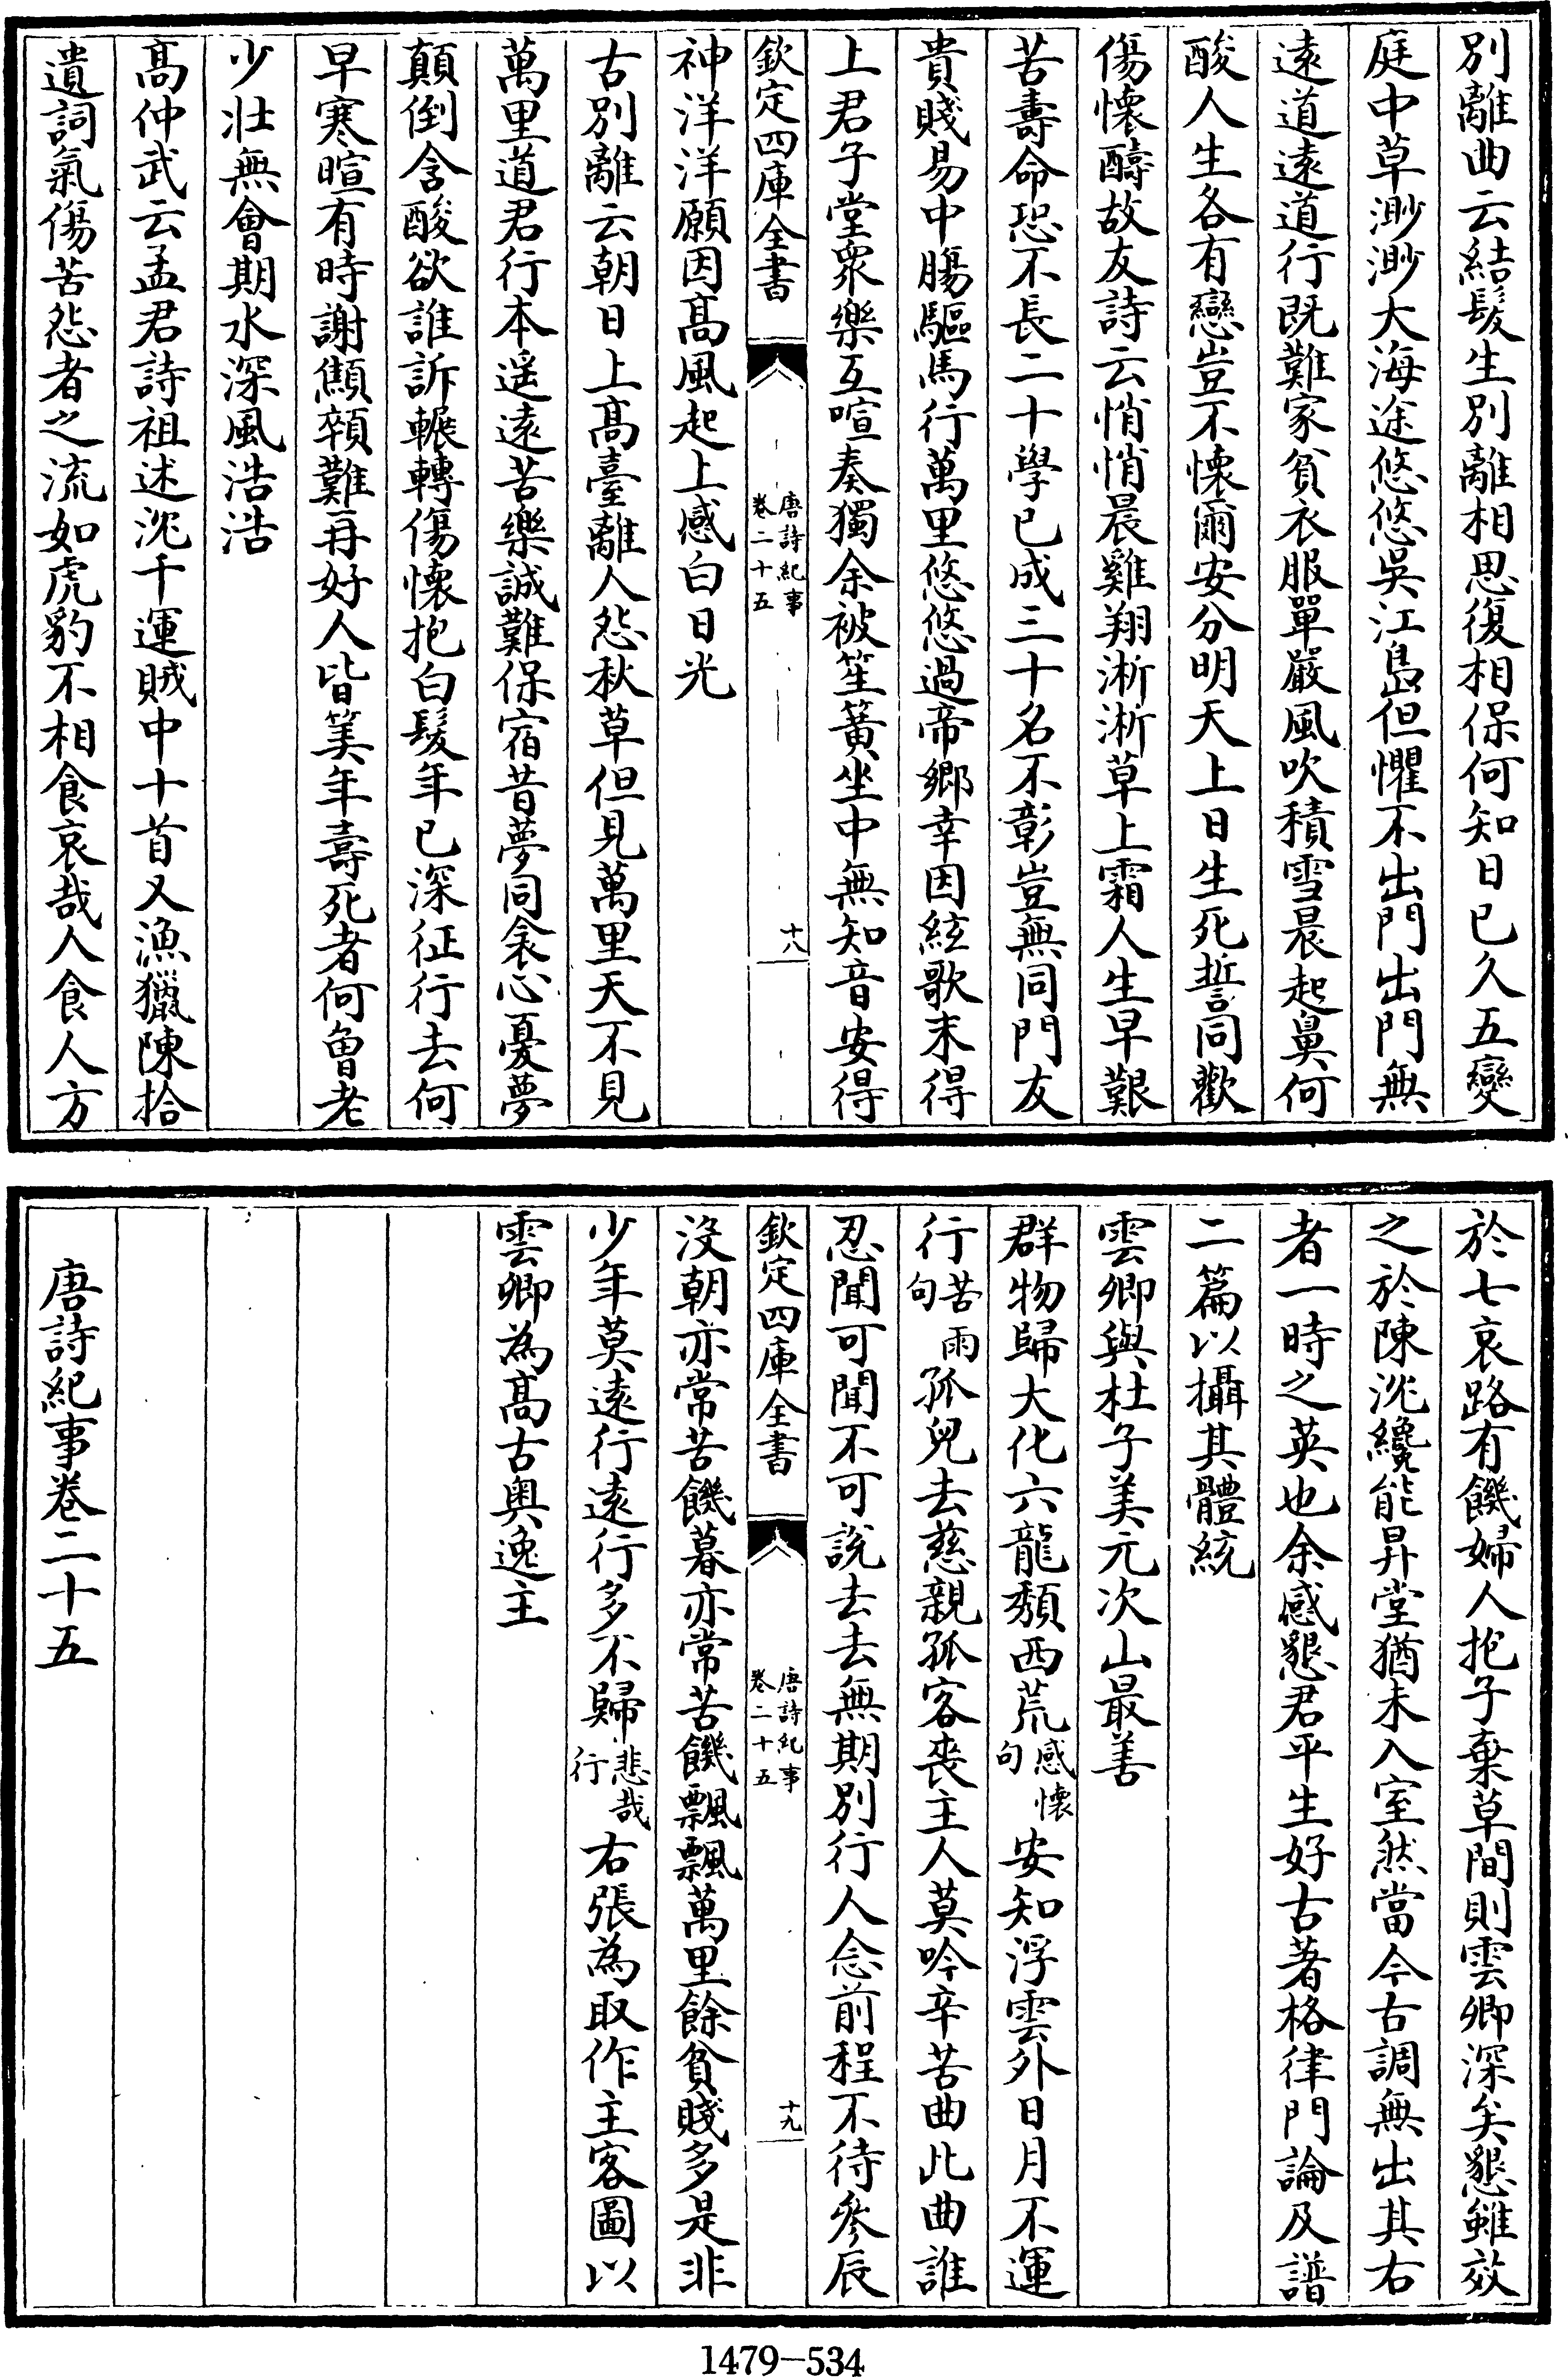 別離曲云結髮生別離相思復相保何知日已久五變
庭中草渺渺大海途悠悠吳江島但懼不出門出門無
遠道遠道行既難家貧衣服單嚴風吹積雪晨起鼻何
酸人生各有戀豈不懷爾安分明天上日生死誓同歡
傷懷醻故友詩云悄悄晨雞翔淅淅草上霜人生早艱
苦壽命恐不長二十學已成三十名不彰豈無同門友
貴賤易中腸驅馬行萬里悠悠過帝鄉幸因絃歌末得
上君子堂衆樂互喧奏獨余被笙簧坐中無知音安得
欽定四庫全書
唐詩紀事
卷二十五
十八
神洋洋願因髙風起上感白日光
古別離云朝日上髙臺離人怨秋草但見萬里天不見
萬里道君行本遥遠苦樂誠難保宿昔夢同衾心憂夢
顛倒含酸欲誰訴輾轉傷懷抱白髮年已深征行去何
早寒暄有時謝顦顇難再好人皆筭年壽死者何曾老
少壯無會期水深風浩浩
髙仲武云孟君詩祖述沈千運賊中十首又漁獵陳拾
遺詞氣傷苦怨者之流如虎豹不相食哀哉人食人方
於七哀路有饑婦人抱子棄草間則雲卿深矣懇雖效
之於陳沈纔能昇堂猶未入室然當今古調無出其右
者一時之英也余感懇君平生好古著格律門論及譜
二篇以攝其體統
雲卿與杜子美元次山最善
群物歸大化六龍頽西荒感懷句安知浮雲外日月不運
行苦雨句孤兒去慈親孤客喪主人莫吟辛苦曲此曲誰
忍聞可聞不可説去去無期別行人念前程不待參辰
欽定四庫全書
唐詩紀事
卷二十五
十九
沒朝亦常苦饑暮亦常苦饑飄飄萬里餘貧賤多是非
少年莫遠行遠行多不歸悲哉行右張為取作主客圖以
雲卿為髙古奥逸主
唐詩紀事卷二十五
1479-534